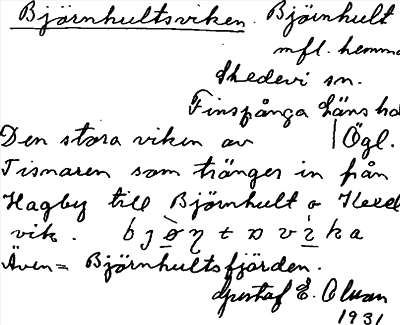 Björnhultsviken. Björnhult
mfl. hemma
Skedevi sn.
Finspånga läns hd
Den stora viken av Ögl.
Tisnaren som tränger in från
Hagby till Björnhult o
vik.
Även = Björnhultsfjärden.
Gustaf E. Olsson
1931